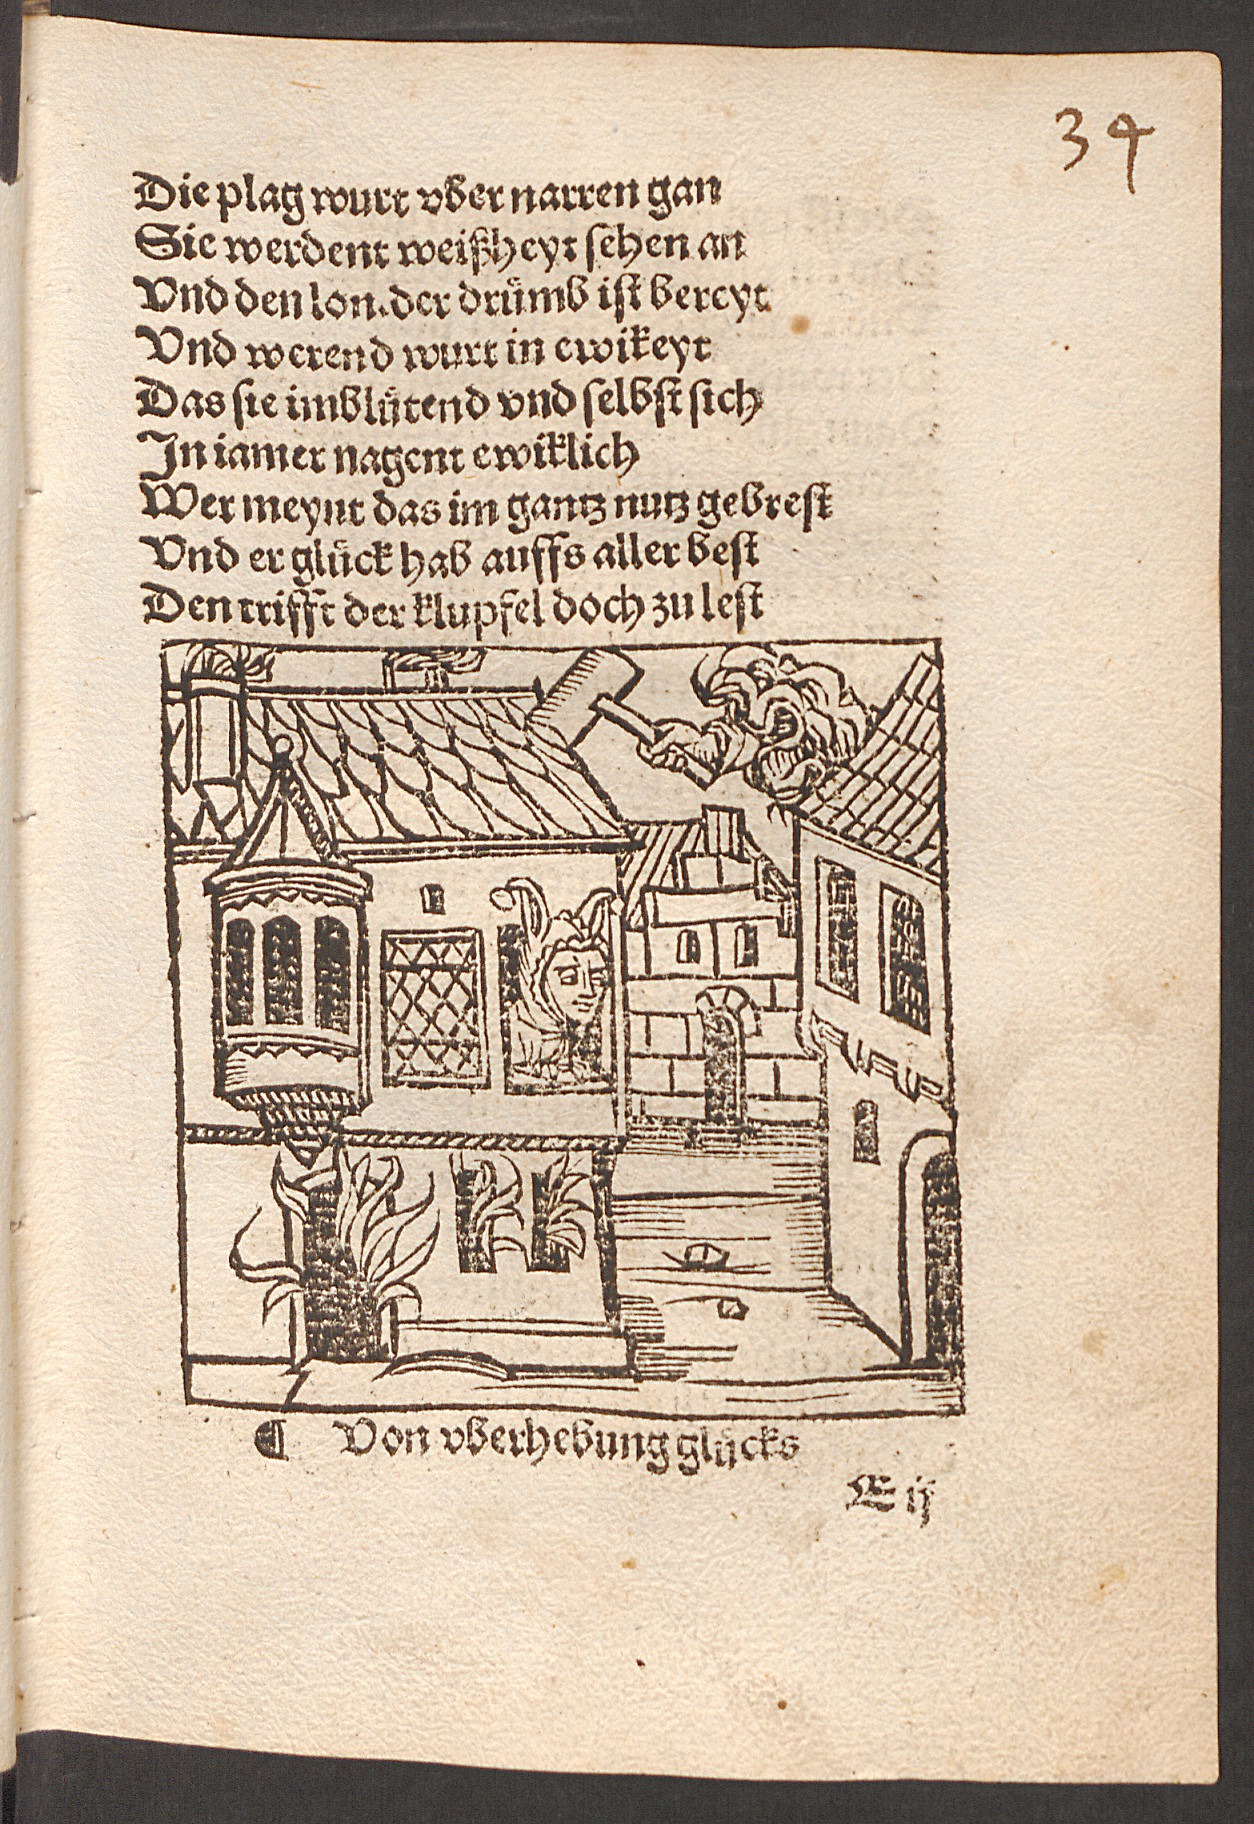 34
Die plag wurt vber narren gan
Sie werdent weißheyt sehen an
Vnd den lon. der drümb ist bereyt
Vnd werend wurt in ewikeyt
Das sie imblütend vnd selbst sich
In iamer nagent ewiklich
Wer meynt das im gantz nutz gebrest
Vnd er glück hab auffs aller best
Den trifft der klupfel doch zu lest
¶ Von vberhebung glücks
E ij